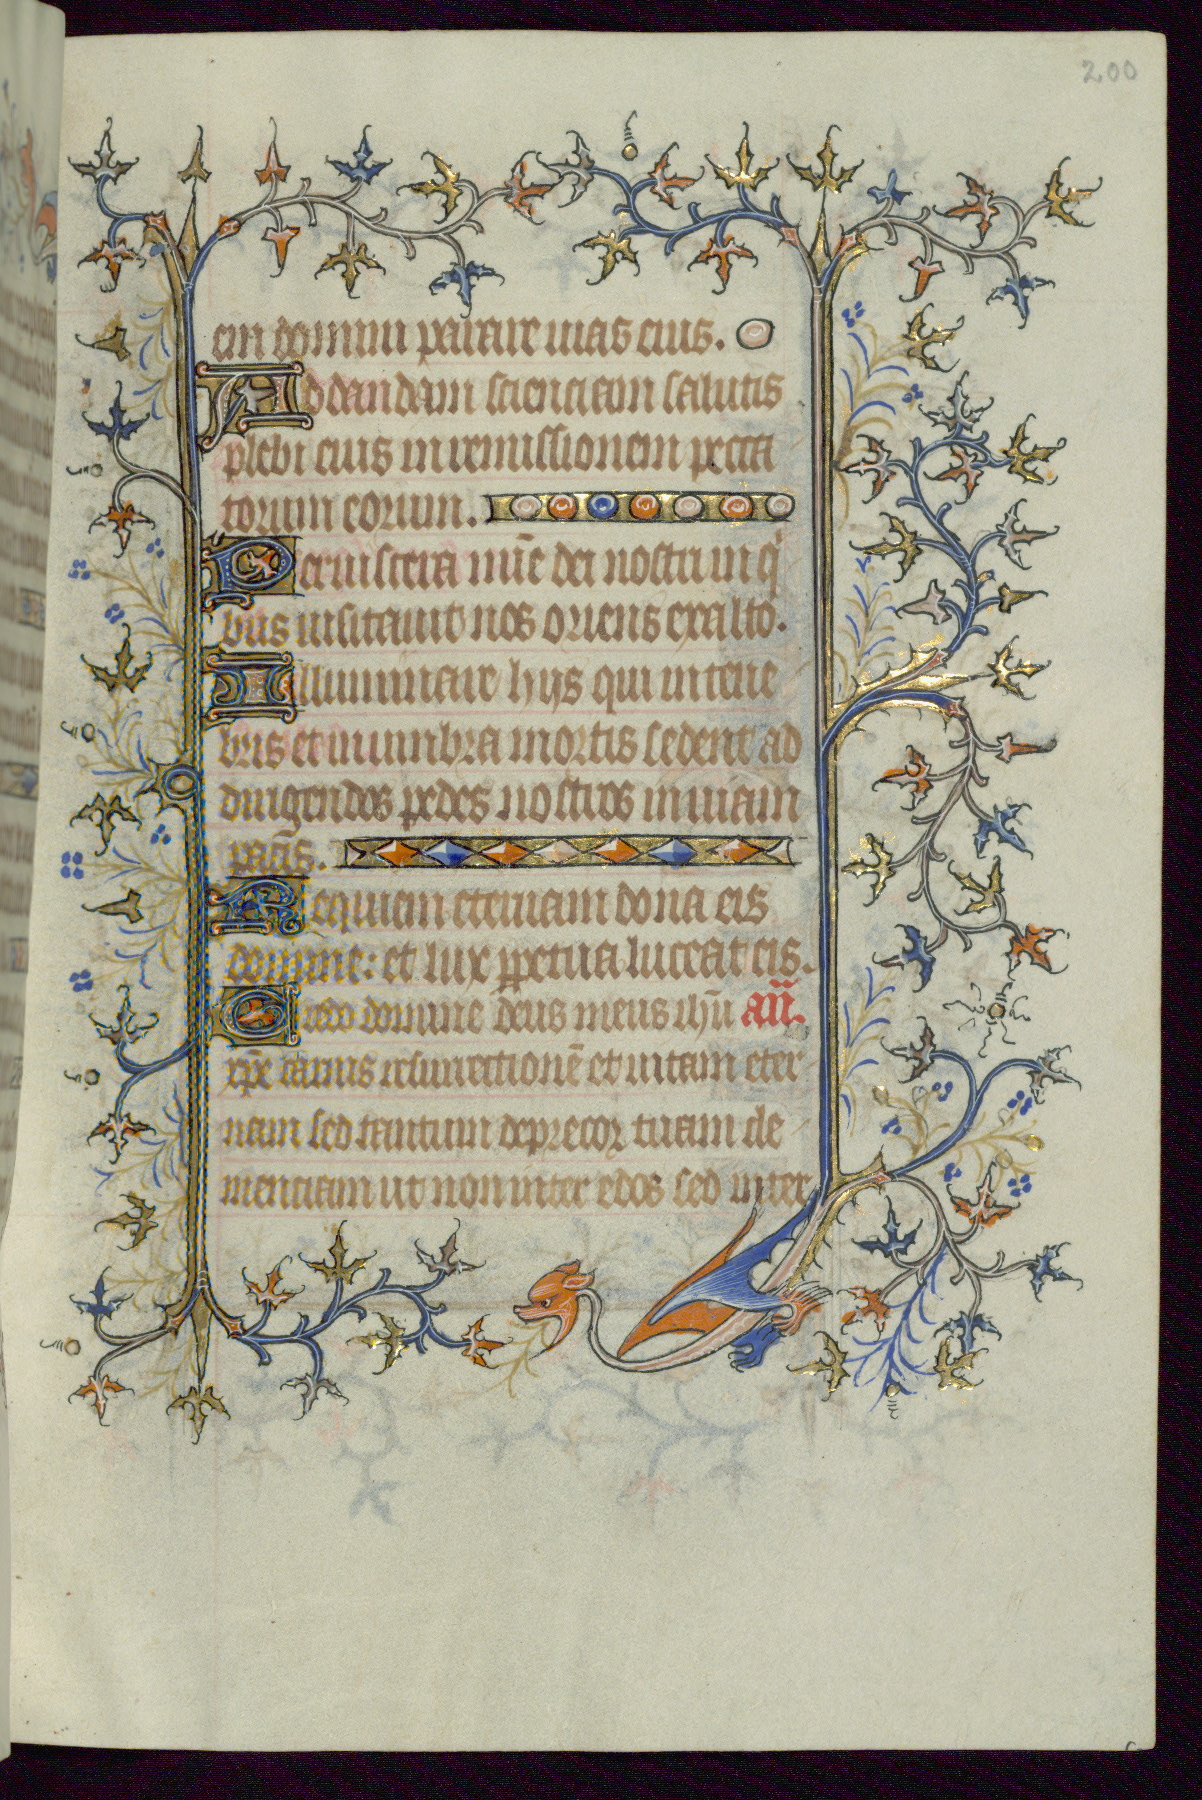 200
em domini parare uias eius.
Ad dandam scienciam salutis
plebi eius in remissionem pecca
torum eorum.
Per uiscera mīe dei nostri in qⁱ
bus uisitauit nos oriens ex alto.
Illuminare hijs qui in tene
bris et in umbra mortis sedent ad
dirigendos pedes nostros in uiam
pacis.
Requiem eternam dona eis
domine: et lux ꝑpetua luceat eis.
Credo domine deus meus ihū añ.
xpē carnis resurrectionē et uitam eter
nam sed tantum deprecor tuam cle
menciam ut non inter edos sed inter